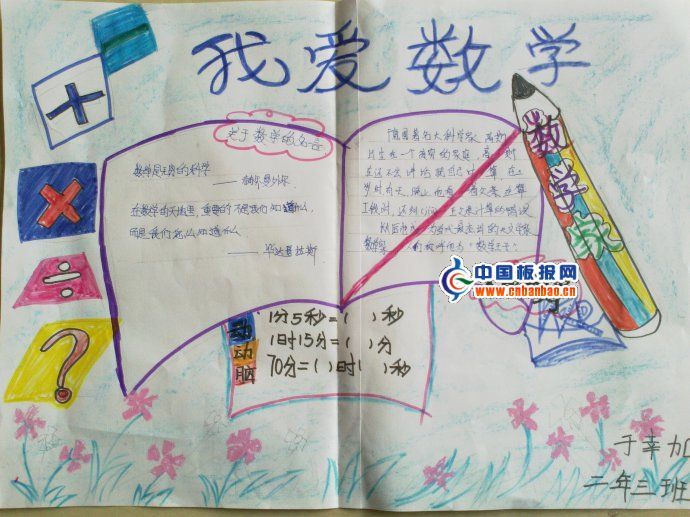 我爱数学
关于数学的名言
数学是无穷的科学
——赫尔曼外尔
在数学的天地里,重要的不是我们知道什么,
而是我们怎么知道什么
——毕达哥拉斯
德国著名大科学家 高斯
出生在一个贫穷的家庭,高斯
在还不会讲话就自己 计算,在
岁时有天晚上他 看着父亲在算
工钱时,还纠 父亲计算的错误
他 当代最杰出的天文学家
数学家 人们 称他为"数学王子"。
数学家
+
×
÷
?
动动脑
1分5秒=( )秒
1时15分=( )分
70分=( )时( )秒
中国板报网
www.cnbanbao.cn
于幸加
二年三班